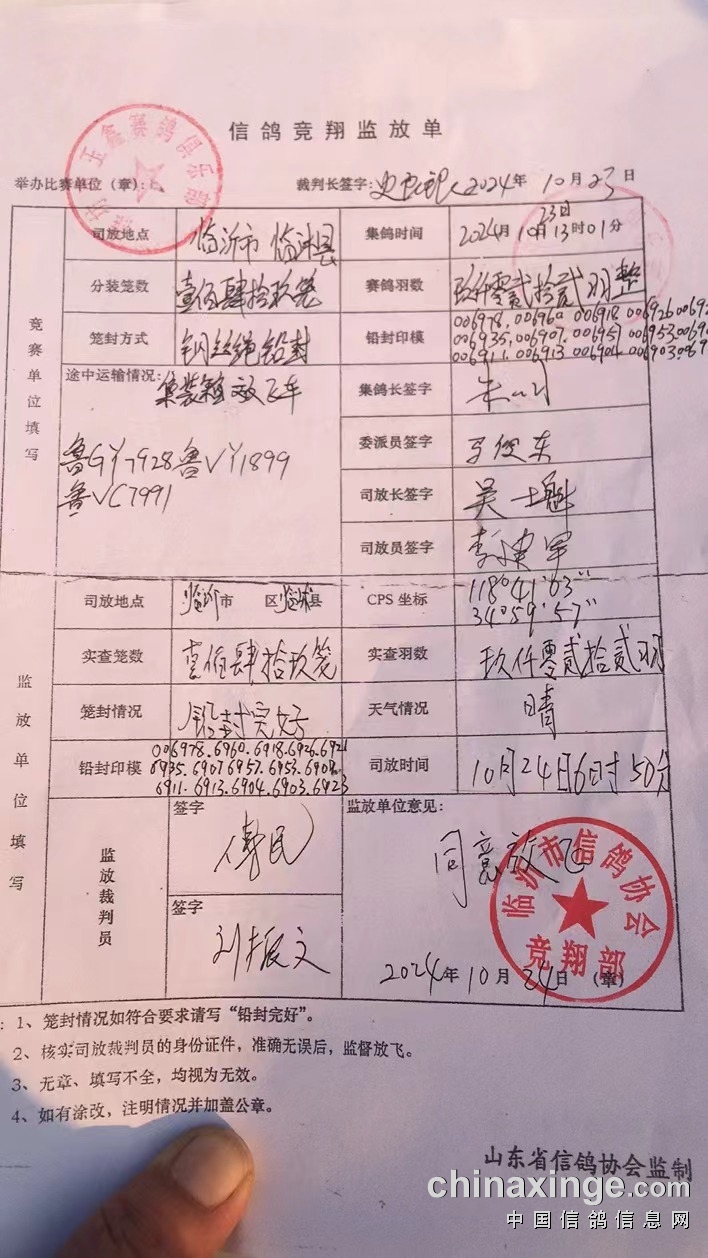 信鸽竞翔监放单
举办比赛单位（章）：
裁判长签字： 2024年 10月23日
竞赛单位填写
司放地点 临沂市 临沭县
集鸽时间 2024年10月23日13时01分
分装笼数 壹佰肆拾玖笼
赛鸽羽数 玖仟零贰拾贰羽整
笼封方式 钢丝绳铅封
铅封印模 006978. 006960 006918 006926
006935. 006907. 006957 006953
006911. 006913 006904 006903
途中运输情况：集装箱放飞车
鲁GY7928鲁VY1899
鲁VC7991
集鸽长签字
委派员签字
司放长签字 吴士魁
司放员签字 李建军
监放单位填写
司放地点 临沂市 区临沭县
CPS 坐标 118°41'63''
34°59'57''
实查笼数 壹佰肆拾玖笼
实查羽数 玖仟零贰拾贰羽
笼封情况 铅封完好
天气情况 晴
铅封印模 006978.6960.6918.6926.6921
6935.6907 6957.6953.6909
6911.6913.6904.6903.6923
司放时间 10月24日6时50分
监放裁判员
签字
签字 刘振文
监放单位意见：
同意放飞
2024年10月24日（章）
临沂市信鸽协会
竞翔部
：1、笼封情况如符合要求请写“铅封完好”。
2、核实司放裁判员的身份证件，准确无误后，监督放飞。
3、无章、填写不全，均视为无效。
4、如有涂改，注明情况并加盖公章。
山东省信鸽协会监制
chinaxinge.com
中国信鸽信息网